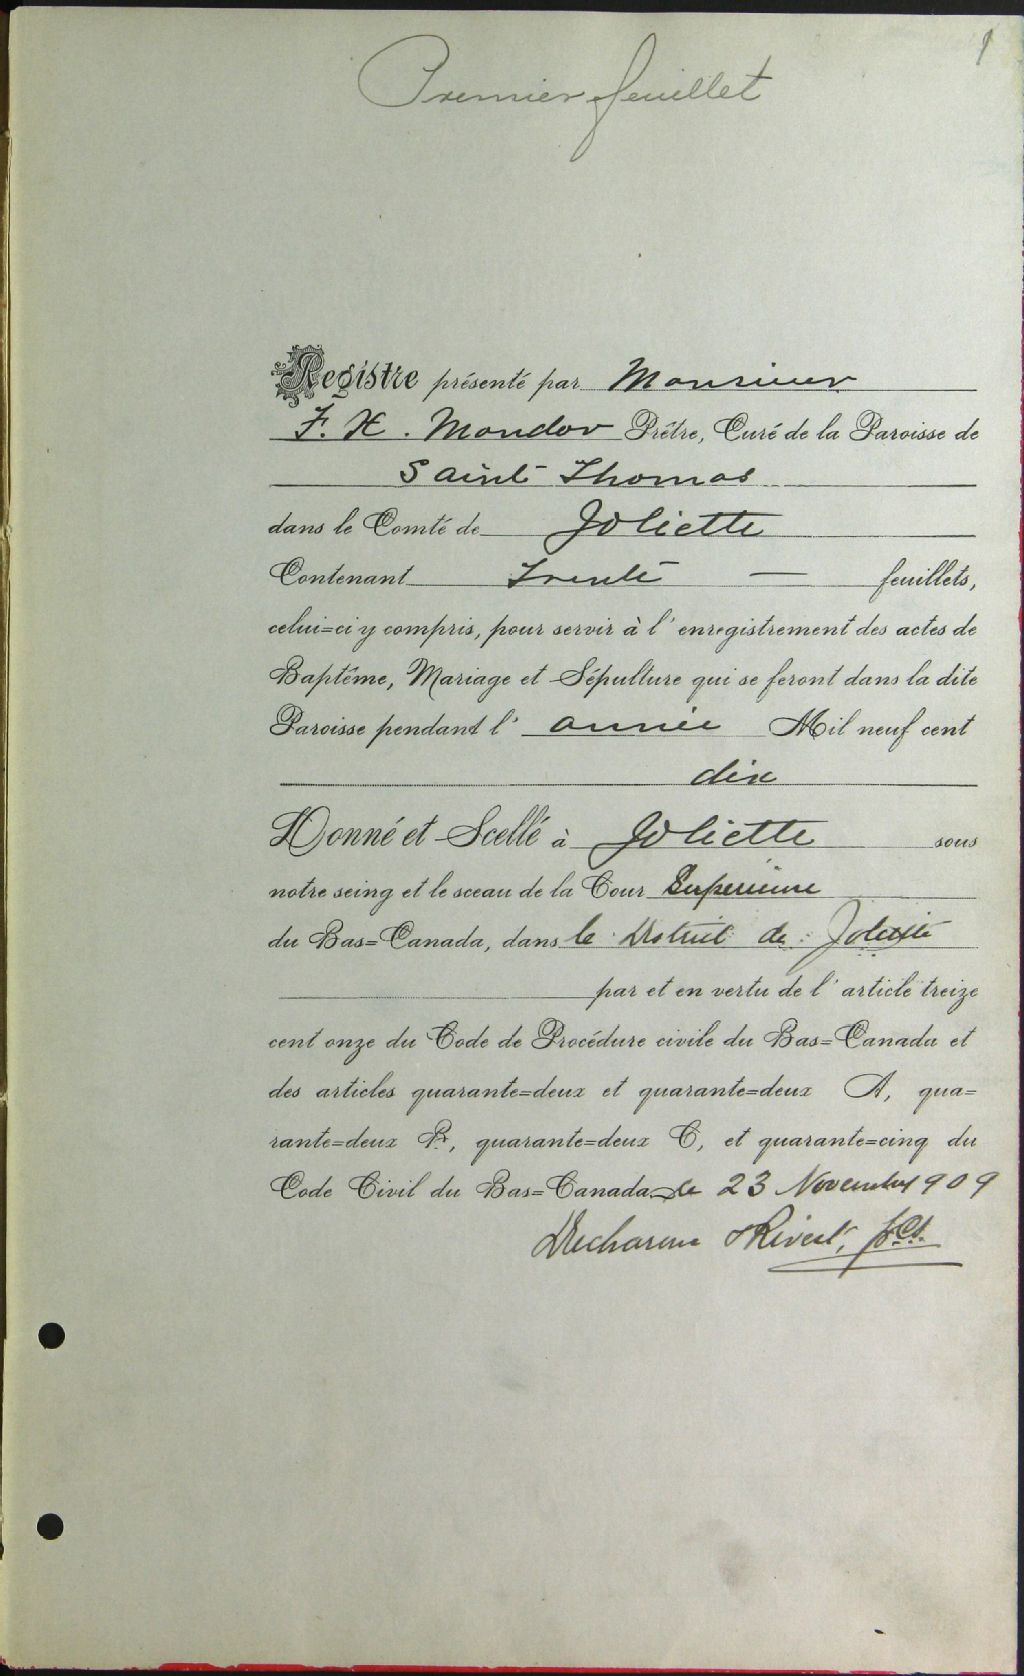 1
Premier feuillet
Registre présenté par Monsieur
F. X. Mondor Prêtre, Curé de la Paroisse de
Saint Thomas
dans le Comté de Joliette
Contenant Trente — feuillets,
celui=ci y compris, pour servir à l'enregistrement des actes de
Baptême, Mariage et Sépulture qui se feront dans la dite
Paroisse pendant l'année Mil neuf cent
dix
Donné et Scellé à Joliette sous
notre seing et le sceau de la Cour Superieure
du Bas=Canada, dans le District de Joliette
par et en vertu de l'article treize
cent onze du Code de Procédure civile du Bas=Canada et
des articles quarante=deux et quarante=deux A, qua=
rante=deux B, quarante=deux C, et quarante=cinq du
Code Civil du Bas=Canada, le 23 Novembre 1909
Rivest,